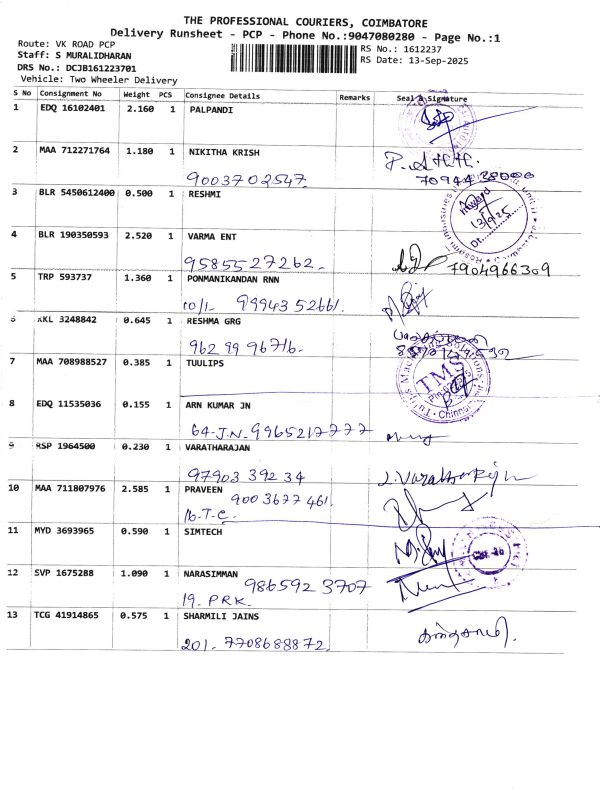 THE PROFESSIONAL COURIERS, COIMBATORE
Delivery Runsheet - PCP - Phone No.:9047080280 - Page No.:1
Route: VK ROAD PCP
Staff: S MURALIDHARAN
DRS No.: DCJB161223701
Vehicle: Two Wheeler Delivery
RS No.: 1612237
RS Date: 13-Sep-2025
S No Consignment No Weight PCS Consignee Details Remarks Seal & Signature
1 EDQ 16102401 2.160 1 PALPANDI
2 MAA 712271764 1.180 1 NIKITHA KRISH
9003702547.
3 BLR 5450612400 0.500 1 RESHMI
13/9/25
4 BLR 190350593 2.520 1 VARMA ENT
9585527262. 7904966309
5 TRP 593737 1.360 1 PONMANIKANDAN RNN
10/1- 9994352661.
6 KKL 3248842 0.645 1 RESHMA GRG
962 99 96716.
7 MAA 708988527 0.385 1 TUULIPS
TMS
8 EDQ 11535036 0.155 1 ARN KUMAR JN
64-J.N. 9965217777
9 RSP 1964500 0.230 1 VARATHARAJAN
97903 392 34 J.Varatharajan
10 MAA 711807976 2.585 1 PRAVEEN
9003677461.
16-T.C.
11 MYD 3693965 0.590 1 SIMTECH
12 SVP 1675288 1.090 1 NARASIMMAN
9865923707
19. PRK.
13 TCG 41914865 0.575 1 SHARMILI JAINS
201. 7708688872.